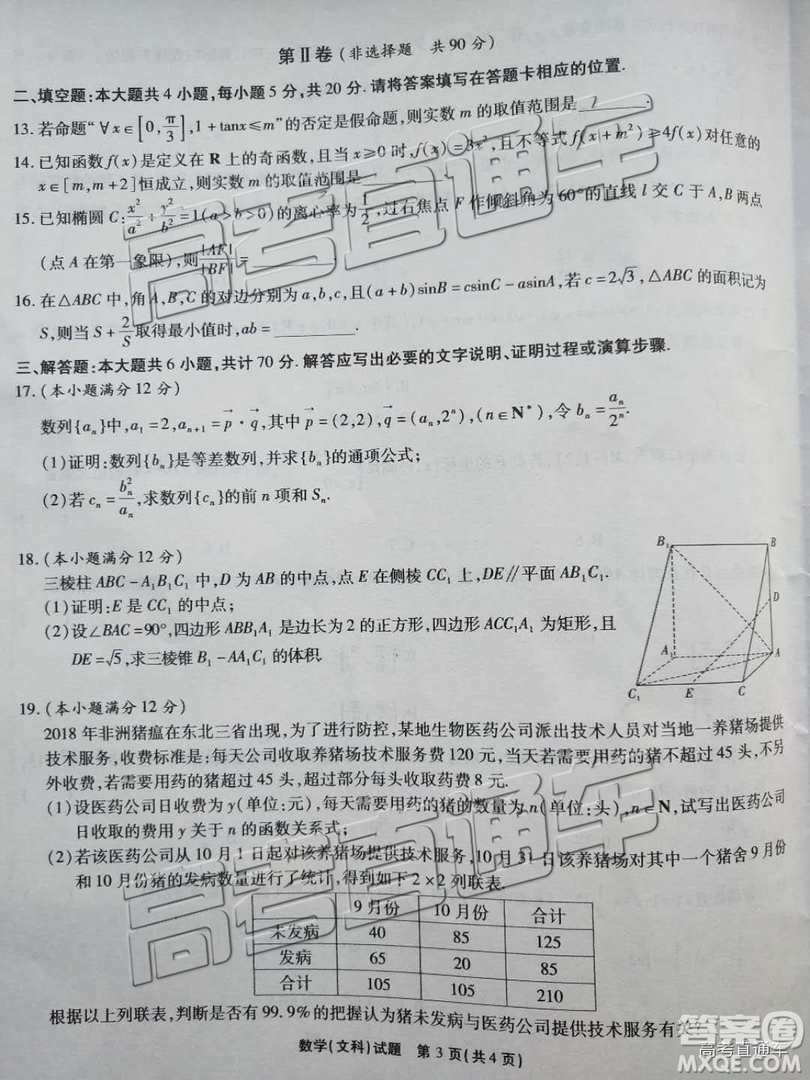 第Ⅱ卷(非选择题 共90分)
二、填空题:本大题共4小题,每小题5分,共20分.请将答案填写在答题卡相应的位置.
13.若命题“∀x∈[0,π/3],1+tanx≤m”的否定是假命题,则实数m的取值范围是
14.已知函数f(x)是定义在R上的奇函数,且当x≥0时,f(x)=3x²,且不等式f(x+m²)≥4f(x)对任意的
x∈[m,m+2]恒成立,则实数m的取值范围是
15.已知椭圆C:x²/a²+y²/b²=1(a>b>0)的离心率为1/2,过右焦点F作倾斜角为60°的直线l交C于A,B两点
(点A在第一象限),则|AF|/|BF|=
16.在△ABC中,角A,B,C的对边分别为a,b,c,且(a+b)sinB=csinC-asinA,若c=2√3,△ABC的面积记为
S,则当S+2/S取得最小值时,ab=____.
三、解答题:本大题共6小题,共计70分.解答应写出必要的文字说明、证明过程或演算步骤.
17.(本小题满分12分)
数列{aₙ}中,a₁=2,aₙ₊₁=p⃗·q⃗,其中p⃗=(2,2),q⃗=(aₙ,2ⁿ),(n∈N*),令bₙ=aₙ/2ⁿ.
(1)证明:数列{bₙ}是等差数列,并求{bₙ}的通项公式;
(2)若cₙ=bₙ²/aₙ,求数列{cₙ}的前n项和Sₙ.
18.(本小题满分12分)
三棱柱ABC-A₁B₁C₁中,D为AB的中点,点E在侧棱CC₁上,DE∥平面AB₁C₁.
(1)证明:E是CC₁的中点;
(2)设∠BAC=90°,四边形ABB₁A₁是边长为2的正方形,四边形ACC₁A₁为矩形,且
DE=√5,求三棱锥B₁-AA₁C₁的体积.
B₁ B
D
A₁ A
C₁ E C
19.(本小题满分12分)
2018年非洲猪瘟在东北三省出现,为了进行防控,某地生物医药公司派出技术人员对当地一养猪场提供
技术服务,收费标准是:每天公司收取养猪场技术服务费120元,当天若需要用药的猪不超过45头,不另
外收费,若需要用药的猪超过45头,超过部分每头收取药费8元.
(1)设医药公司日收费为y(单位:元),每天需要用药的猪的数量为n(单位:头),n∈N,试写出医药公司
日收取的费用y关于n的函数关系式;
(2)若该医药公司从10月1日起对该养猪场提供技术服务,10月31日该养猪场对其中一个猪舍9月份
和10月份猪的发病数量进行了统计,得到如下2×2列联表.
9月份 10月份 合计
未发病 40 85 125
发病 65 20 85
合计 105 105 210
根据以上列联表,判断是否有99.9%的把握认为猪未发病与医药公司提供技术服务有关?
数学(文科)试题 第3页(共4页)
高考直通车
高考直通车
答案圈
高考直通车
MXQE.COM